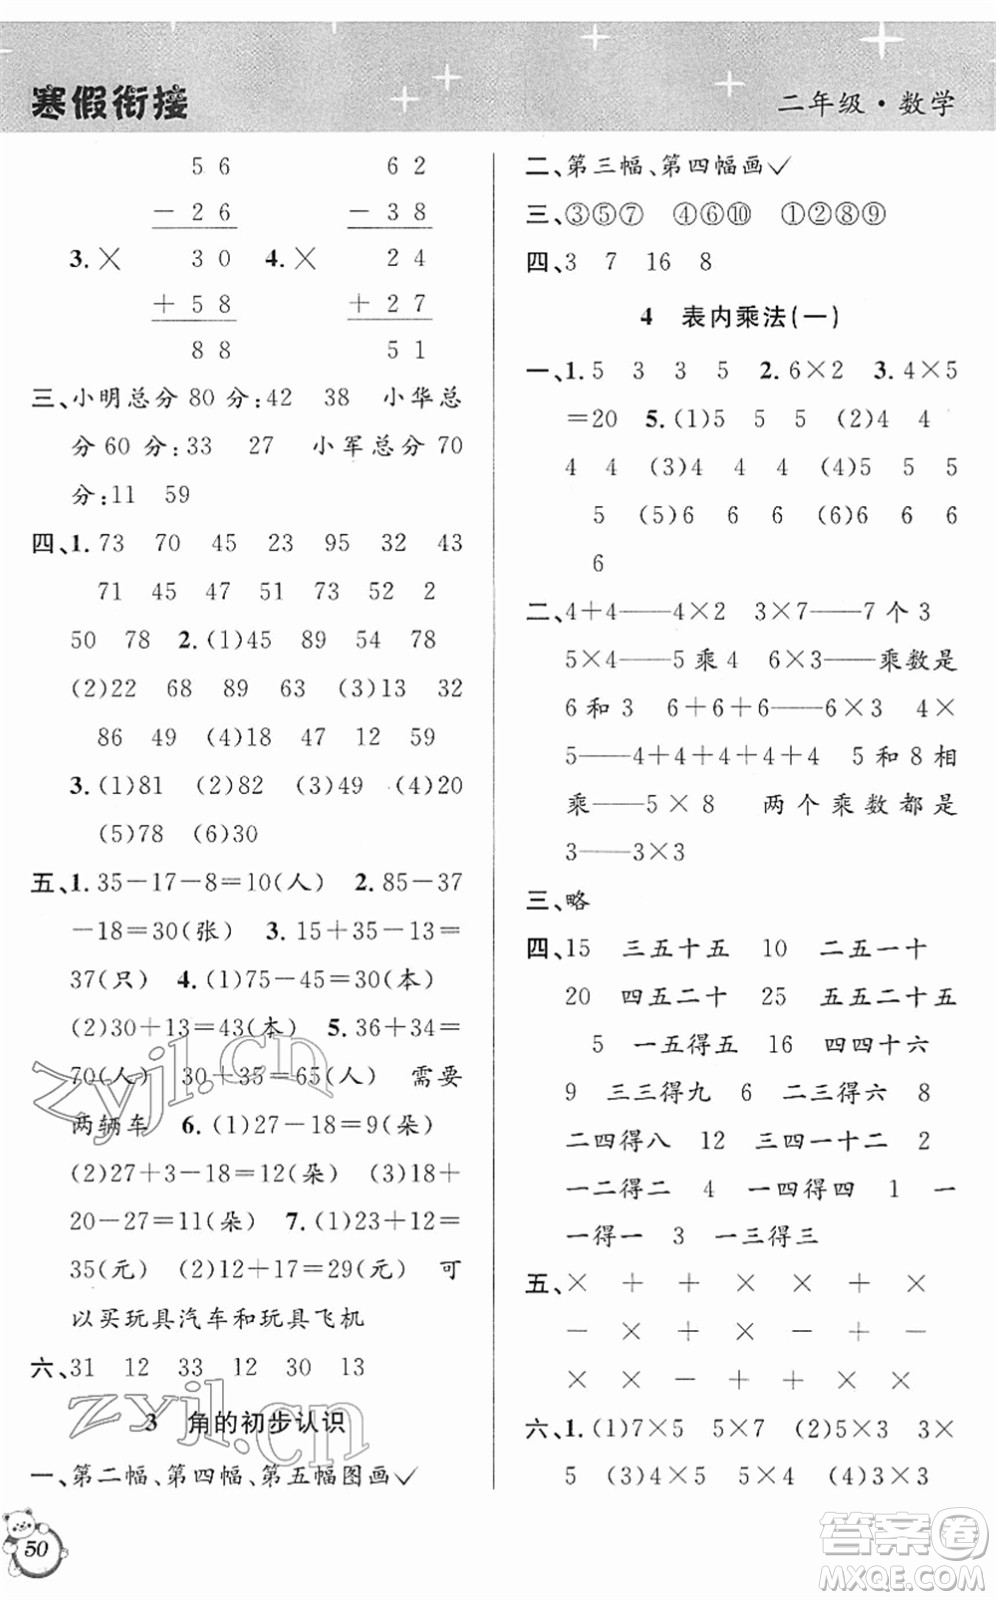 寒假衔接
二年级·数学
5 6 6 2
－ 2 6 － 3 8
3.× 3 0 4.× 2 4
＋ 5 8 ＋ 2 7
8 8 5 1
三、小明总分 80 分:42 38 小华总
分 60 分:33 27 小军总分 70
分:11 59
四、1.73 70 45 23 95 32 43
71 45 47 51 73 52 2
50 78 2.(1)45 89 54 78
(2)22 68 89 63 (3)13 32
86 49 (4)18 47 12 59
3.(1)81 (2)82 (3)49 (4)20
(5)78 (6)30
五、1.35－17－8＝10(人) 2.85－37
－18＝30(张) 3.15＋35－13＝
37(只) 4.(1)75－45＝30(本)
(2)30＋13＝43(本) 5.36＋34＝
70(人) 30＋35＝65(人) 需要
两辆车 6.(1)27－18＝9(朵)
(2)27＋3－18＝12(朵) (3)18＋
20－27＝11(朵) 7.(1)23＋12＝
35(元) (2)12＋17＝29(元) 可
以买玩具汽车和玩具飞机
六、31 12 33 12 30 13
3 角的初步认识
一、第二幅、第四幅、第五幅图画✓
50
二、第三幅、第四幅画✓
三、③⑤⑦ ④⑥⑩ ①②⑧⑨
四、3 7 16 8
4 表内乘法(一)
一、1.5 3 3 5 2.6×2 3.4×5
＝20 5.(1)5 5 5 (2)4 4
4 4 (3)4 4 4 (4)5 5 5
5 (5)6 6 6 (6)6 6 6
6
二、4＋4——4×2 3×7——7 个 3
5×4——5 乘 4 6×3——乘数是
6 和 3 6＋6＋6——6×3 4×
5——4＋4＋4＋4＋4 5 和 8 相
乘——5×8 两个乘数都是
3——3×3
三、略
四、15 三五十五 10 二五一十
20 四五二十 25 五五二十五
5 一五得五 16 四四十六
9 三三得九 6 二三得六 8
二四得八 12 三四一十二 2
一二得二 4 一四得四 1 一
一得一 3 一三得三
五、× ＋ ＋ × × ＋ ×
－ × ＋ × － ＋ ×
× × － ＋ ＋ × ×
六、1.(1)7×5 5×7 (2)5×3 3×
5 (3)4×5 5×5 (4)3×3
zyjl.cn
zyjl.cn
答案圈
MXQE.COM